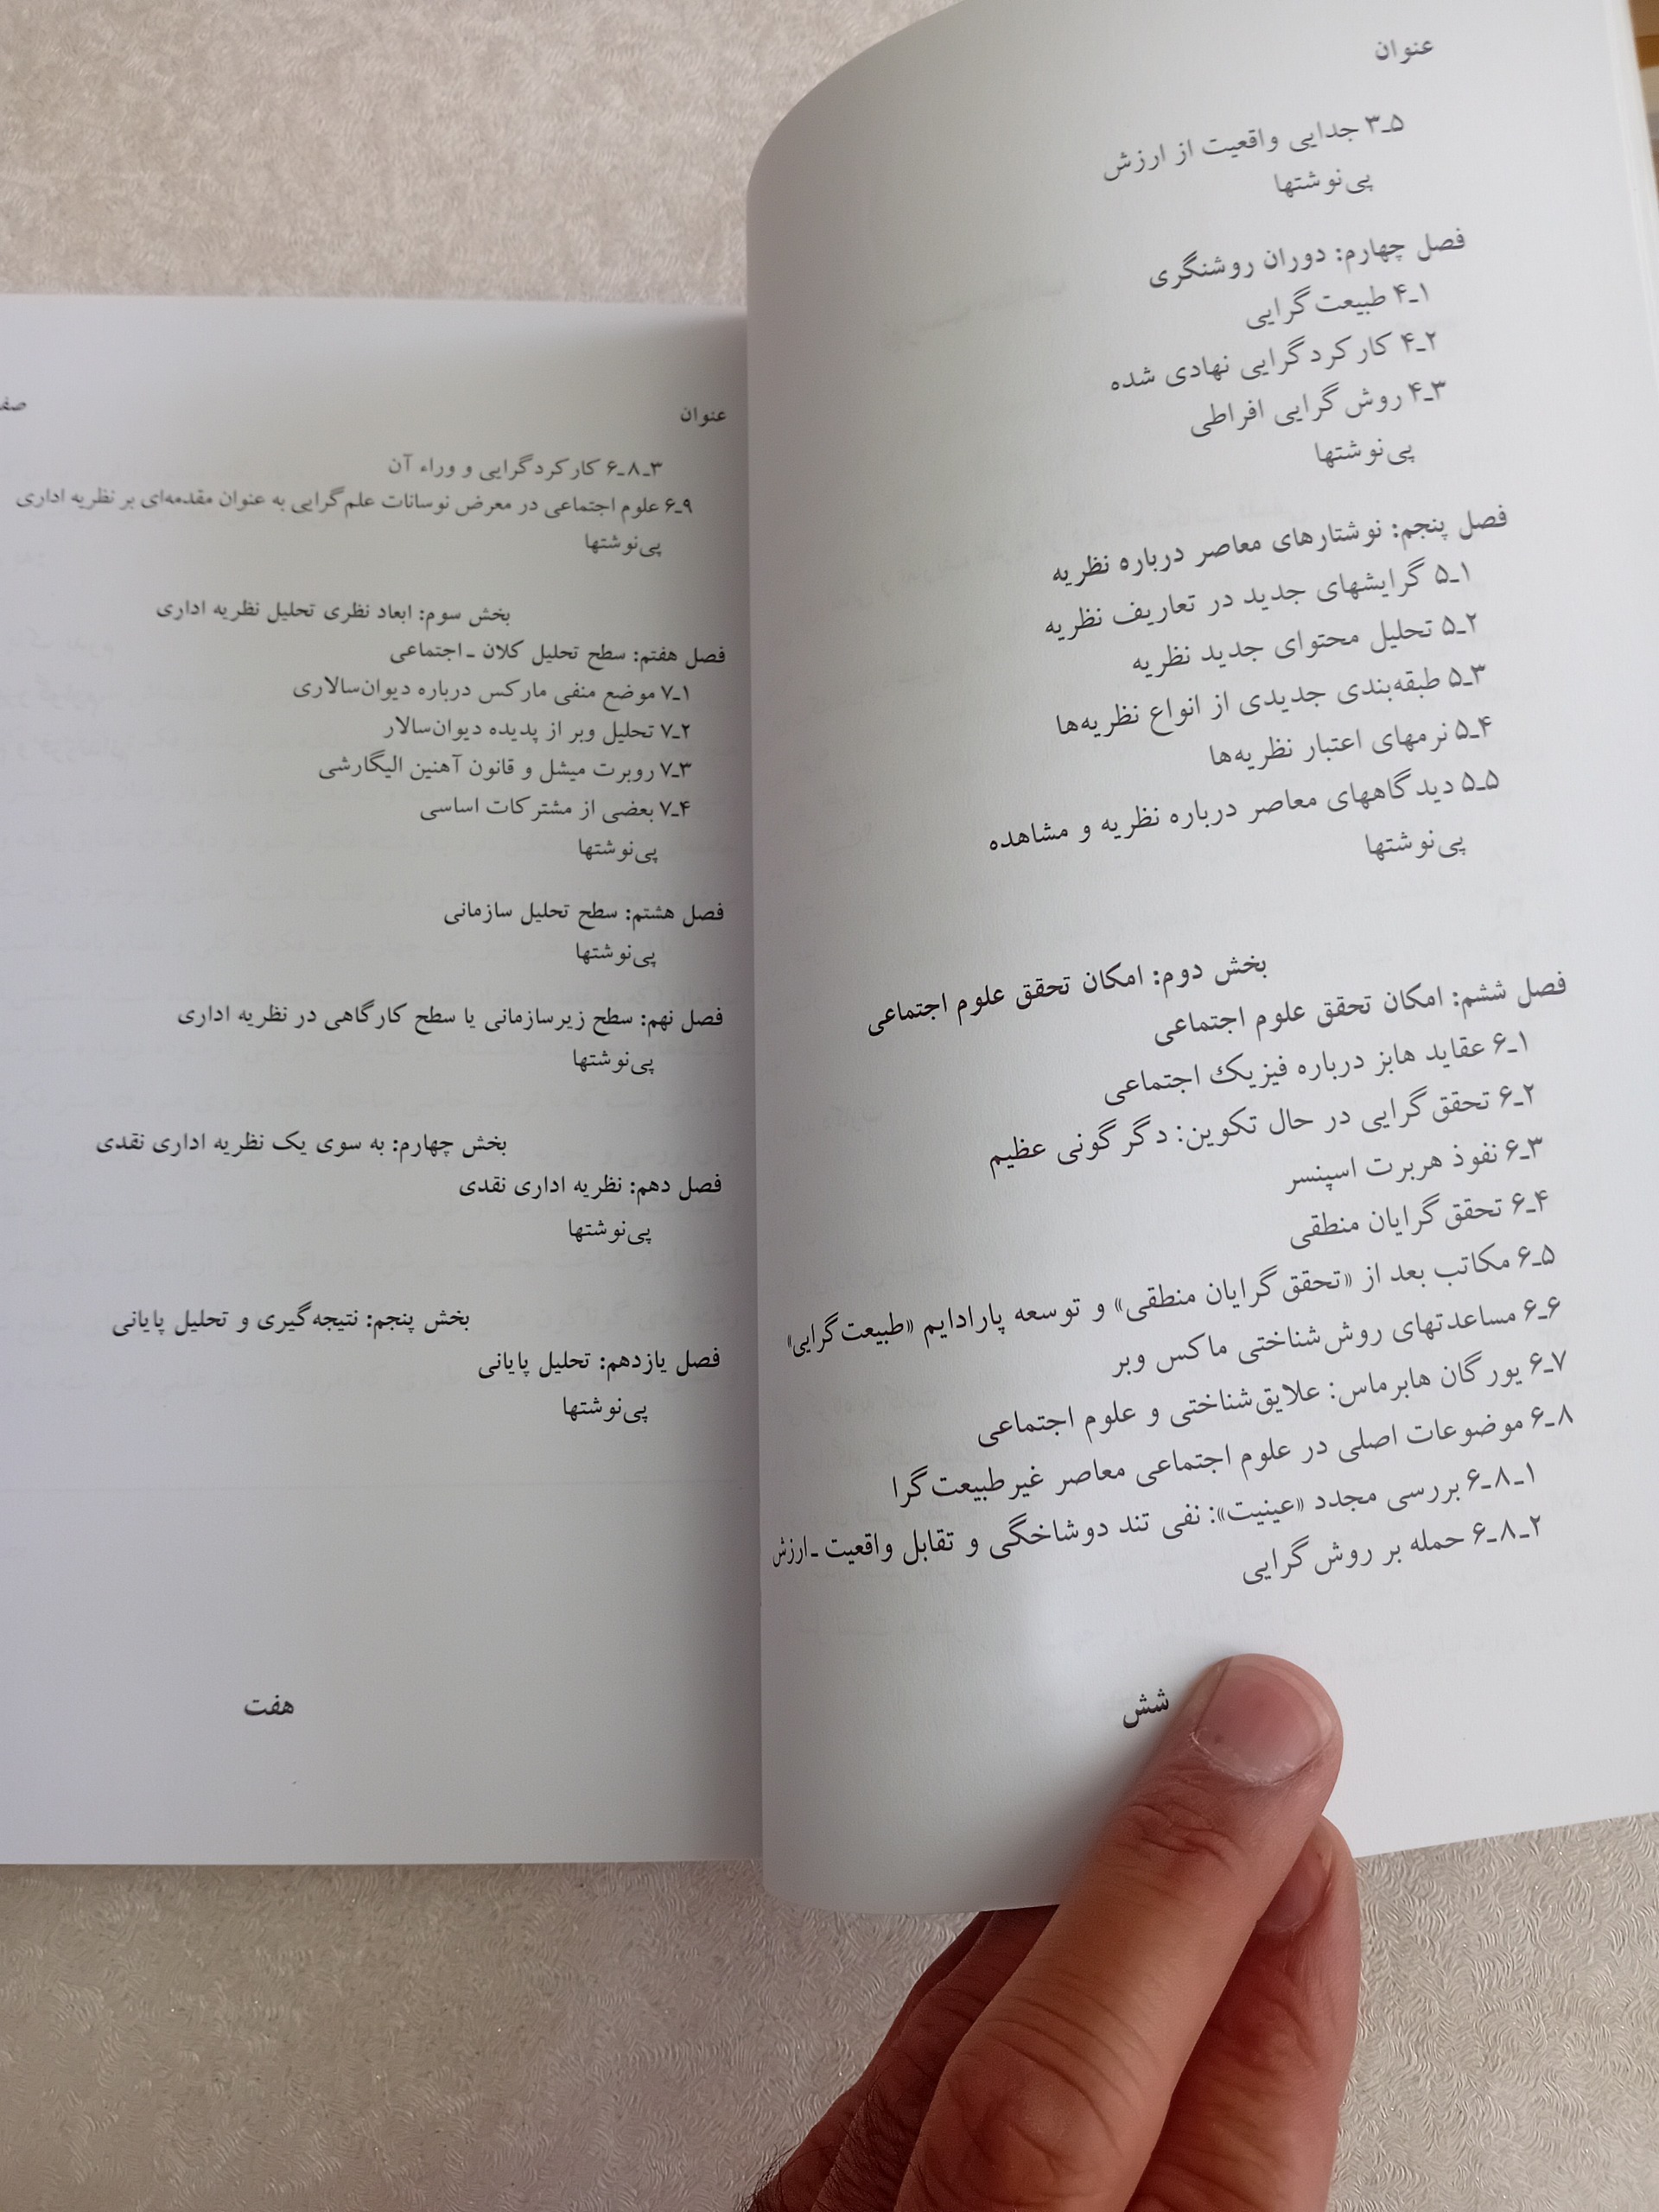 عنوان
۳ـ۵ جدایی واقعیت از ارزش
پی‌نوشتها
فصل چهارم: دوران روشنگری
۴ـ۱ طبیعت‌گرایی
۴ـ۲ کارکردگرایی نهادی شده
۴ـ۳ روش‌گرایی افراطی
پی‌نوشتها
فصل پنجم: نوشتارهای معاصر درباره نظریه
۵ـ۱ گرایشهای جدید در تعاریف نظریه
۵ـ۲ تحلیل محتوای جدید نظریه
۵ـ۳ طبقه‌بندی جدیدی از انواع نظریه‌ها
۵ـ۴ نرمهای اعتبار نظریه‌ها
۵ـ۵ دیدگاههای معاصر درباره نظریه و مشاهده
پی‌نوشتها
بخش دوم: امکان تحقق علوم اجتماعی
فصل ششم: امکان تحقق علوم اجتماعی
۶ـ۱ عقاید هابز درباره فیزیک اجتماعی
۶ـ۲ تحقق‌گرایی در حال تکوین: دگرگونی عظیم
۶ـ۳ نفوذ هربرت اسپنسر
۶ـ۴ تحقق‌گرایان منطقی
۶ـ۵ مکاتب بعد از «تحقق‌گرایان منطقی» و توسعه پارادایم «طبیعت‌گرایی»
۶ـ۶ مساعدتهای روش‌شناختی ماکس وبر
۶ـ۷ یورگان هابرماس: علایق‌شناختی و علوم اجتماعی
۶ـ۸ موضوعات اصلی در علوم اجتماعی معاصر غیرطبیعت‌گرا
۶ـ۸ـ۱ بررسی مجدد «عینیت»: نفی تند دوشاخگی و تقابل واقعیت ـ ارزش
۶ـ۸ـ۲ حمله بر روش‌گرایی
شش
عنوان
۶ـ۸ـ۳ کارکردگرایی و وراء آن
۶ـ۹ علوم اجتماعی در معرض نوسانات علم‌گرایی به عنوان مقدمه‌ای بر نظریه اداری
پی‌نوشتها
بخش سوم: ابعاد نظری تحلیل نظریه اداری
فصل هفتم: سطح تحلیل کلان ـ اجتماعی
۷ـ۱ موضع منفی مارکس درباره دیوان‌سالاری
۷ـ۲ تحلیل وبر از پدیده دیوان‌سالار
۷ـ۳ روبرت میشل و قانون آهنین الیگارشی
۷ـ۴ بعضی از مشترکات اساسی
پی‌نوشتها
فصل هشتم: سطح تحلیل سازمانی
پی‌نوشتها
فصل نهم: سطح زیرسازمانی یا سطح کارگاهی در نظریه اداری
پی‌نوشتها
بخش چهارم: به سوی یک نظریه اداری نقدی
فصل دهم: نظریه اداری نقدی
پی‌نوشتها
بخش پنجم: نتیجه‌گیری و تحلیل پایانی
فصل یازدهم: تحلیل پایانی
پی‌نوشتها
هفت